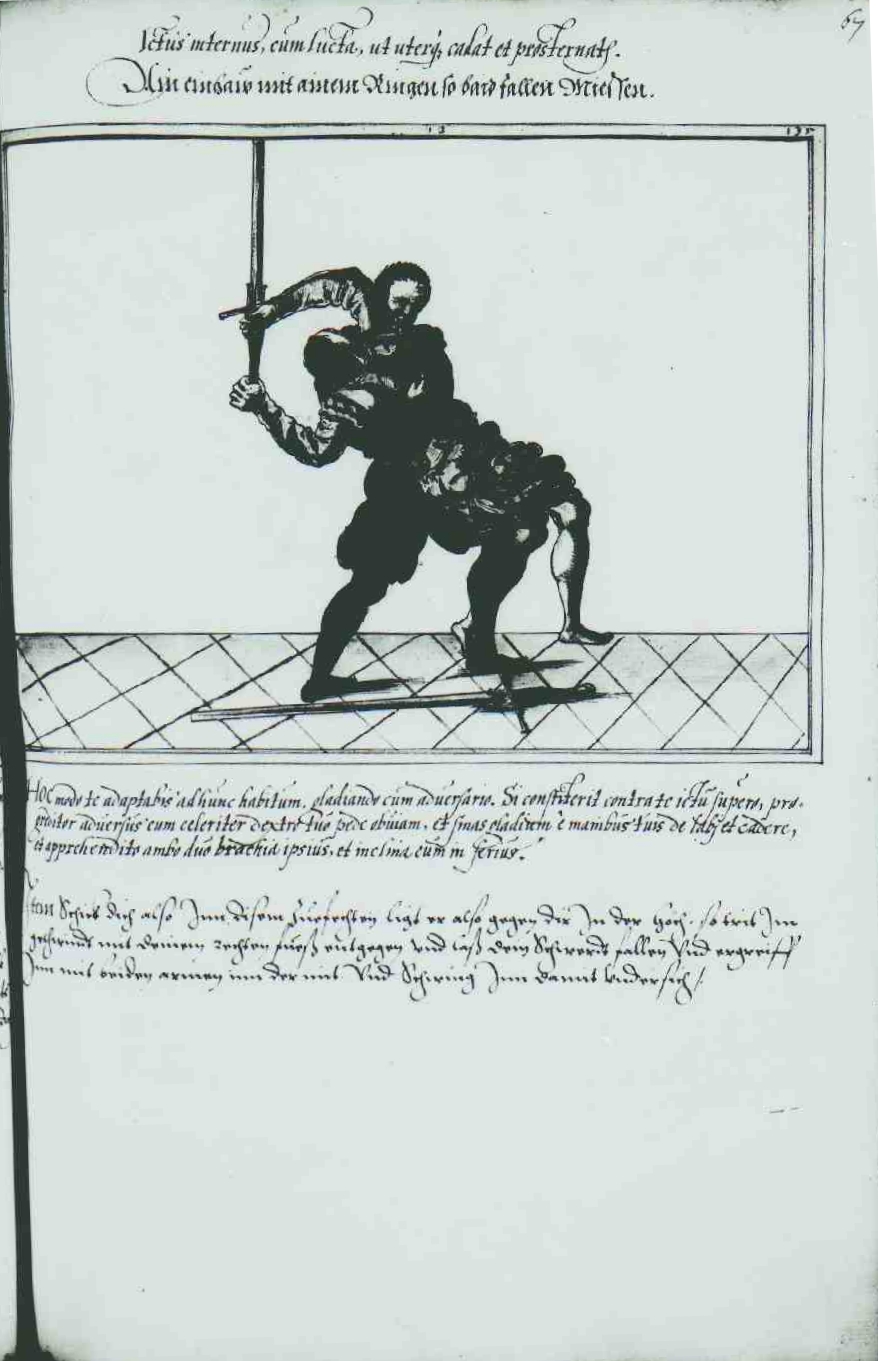 67
Ictus internus, cum lucta, ut uterq, cadat et prosternatr.
Ain einhaw mit ainem Ringen so baid fallen Miessen.
Hoc modo te adaptabis ad hunc habitum, gladiando cum adversario. Si constiterit contra te ictu supero, pro-
greditor adversus eum celeriter dextro tuo pede obviam, et sinas gladium e manibus tuis delabj et cadere,
et apprehendito ambo duo brachia ipsius, et inclina eum in ferius.
Item Schick dich also Inn disem zuefechten ligt er also gegen dir In der höch, so trit Im
geschwindt mit deinem rechten fueß entgegen vnd laß dein Schwerdt fallen Vnd ergreiff
Inn mit beiden armen inn der mit Vnd Schwing Inn damit vndersich /.